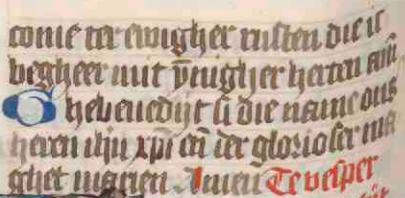 come ter ewigher rusten die ic
begheer mit vruighier herten amen
Ghebenedijt si die name ons
heren ihu xpi en der glorioser ma
ghet marien Amen Te vesper